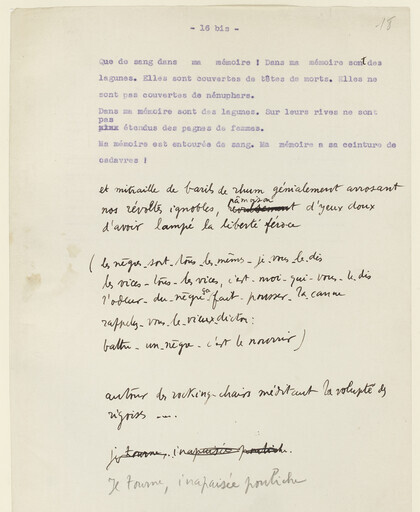 - 16 bis -
15
Que de sang dans ma mémoire ! Dans ma mémoire sont des
lagunes. Elles sont couvertes de têtes de morts. Elles ne
sont pas couvertes de nénuphars.
Dans ma mémoire sont des lagunes. Sur leurs rives ne sont
pas
étendus des pagnes de femmes.
Ma mémoire est entourée de sang. Ma mémoire a sa ceinture de
cadavres !
et mitraille de barils de rhum génialement arrosant
nos révoltes ignobles, pâmoison d'yeux doux
d'avoir lampé la liberté féroce
( les nègres-sont-tous-les-mêmes-je-vous-le-dis
les vices-tous-les-vices, c'est-moi-qui-vous-le-dis
l'odeur-du-nègre-ça-fait-pousser-la-canne
rappelez-vous-le-vieux-dicton:
battre-un-nègre-c'est le nourrir)
autour des rocking-chairs méditant la volupté des
rigoises ....
je tourne, inapaisée pouliche.
Je tourne, inapaisée pouliche